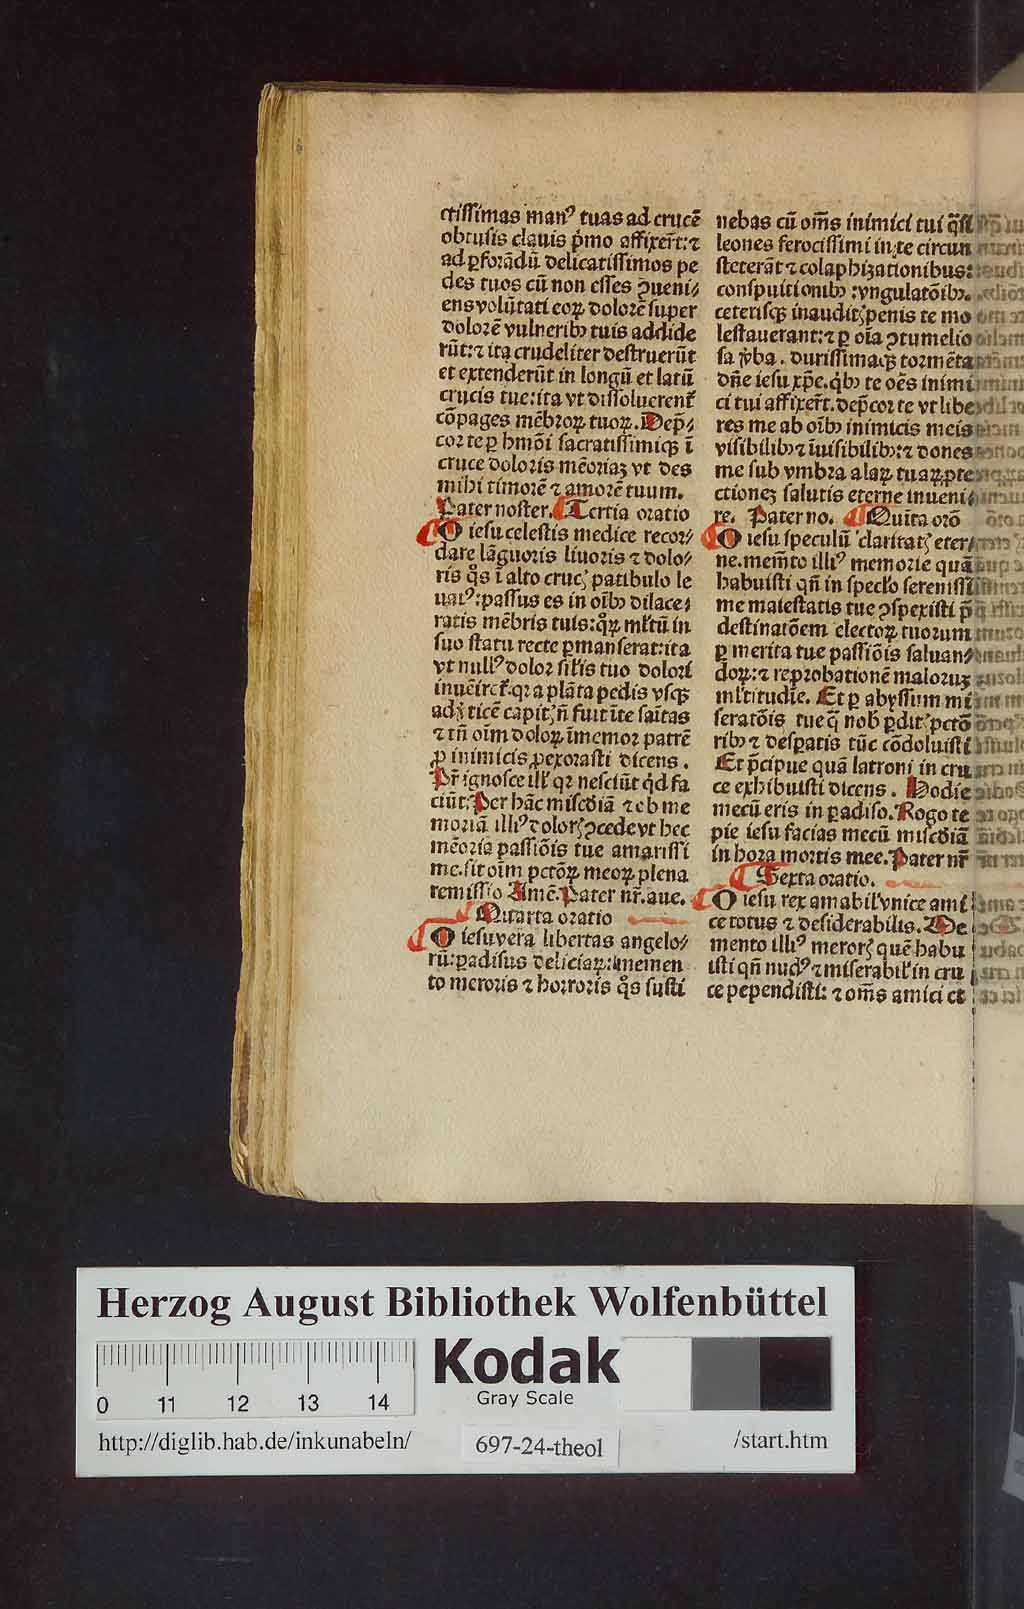 ctissimas manꝰ tuas ad crucē
obtusis clauis pͥmo affixer̄t: ⁊
ad ꝑforādū delicatissimos pe
des tuos cū non esses ꝯueni⸗
ens volūtati eoꝝ dolorē super
dolorē vulneribꝰ tuis addide
rūt: ⁊ ita crudeliter destruerūt
et extenderūt in longū et latū
crucis tue: ita vt dissoluerent᷑
cōpages mēbroꝝ tuoꝝ. Dep̄⸗
cor te ꝑ hmōi sacratissimiqꝫ ī
cruce doloris mēoriaꝫ vt des
mihi timorē ⁊ amorē tuum.
Pater noster. Tertia oratio
O iesu celestis medice recor⸗
dare lāguoris liuoris ⁊ dolo⸗
ris q̊s ī alto crucꝭ patibulo le
uatꝰ: passus es in oībꝫ dilace⸗
ratis mēbris tuis: qͦꝝ nlłtū in
suo statu recte ꝑmanserat: ita
vt nullꝰ dolor siłis tuo dolori
inuēiret᷑. qꝛ a plāta pedis vsqꝫ
ad ꝟticē capitꝭ n̄ fuit ī te sāitas
⁊ tn̄ oīm doloꝝ īmemor patrē
ꝓ inimicis ꝓexorasti dicens.
Pr̄ ignosce ill̓ qꝛ nesciūt qͥd fa
ciūt: Per hāc miscd̓iā ⁊ ob me
moriā illiꝰ dolorꝭ ꝯcede vt hec
mēoria passiōis tue amarissi
me. sit oīm pctōꝝ meoꝝ plena
remissio Amē. Pater nr̄. aue.
Quarta oratio
O iesu vera libertas angelo⸗
rū: ꝑadisus deliciaꝝ: memen
to meroris ⁊ horroris q̊s susti
nebas cū om̄s inimici tui q̄si
leones ferocissimi in te circun
steterāt ⁊ colaphizationibus:
conspuitionibꝫ: vngulatōibꝫ.
ceterisqꝫ inauditꝭ penis te mo
lestauerant: ⁊ ꝑ oīa ꝯtumelio
sa ꝟba. durissimaqꝫ tormēta
dn̄e iesu xp̄e. qͥbꝫ te oēs inimi
ci tui affixer̄t. dep̄cor te vt libe
res me ab oībꝫ inimicis meis
visibilibꝫ ⁊ īuisibilibꝫ: ⁊ dones
me sub vmbra alaꝝ tuaꝝ. ꝓte
ctionez salutis eterne inueni⸗
re. Pater no. Quīta orō
O iesu speculū claritatꝭ eter⸗
ne. mem̄to illiꝰ memorie quā
habuisti qn̄ in spec̓lo serenissi
me maiestatis tue ꝯspexisti p̄
destinatōem electoꝝ tuorum
ꝑ merita tue passiōis saluan⸗
doꝝ: ⁊ reprobationē maloruꝫ
mł̓titudīe. Et ꝑ abyssum mi
seratōis tue q̄ nob̓ ꝑditꝭ pctō
ribꝫ ⁊ desꝑatis tūc cōdoluisti
Et p̄cipue quā latroni in cru
ce exhibuisti dicens. Hodie
mecū eris in ꝑadiso. Rogo te
pie iesu facias mecū miscd̓iā
in hora mortis mee. Pater nr̄
Sexta oratio.
O iesu rex amabił vnice ami
ce totus ⁊ desiderabilis. Me
mento illiꝰ merorꝭ quē habu
isti qn̄ nudꝰ ⁊ miserabił in cru
ce pependisti: ⁊ om̄s amici et
Herzog August Bibliothek Wolfenbüttel
0 11 12 13 14
Kodak
Gray Scale
http://diglib.hab.de/inkunabeln/
697-24-theol
/start.htm